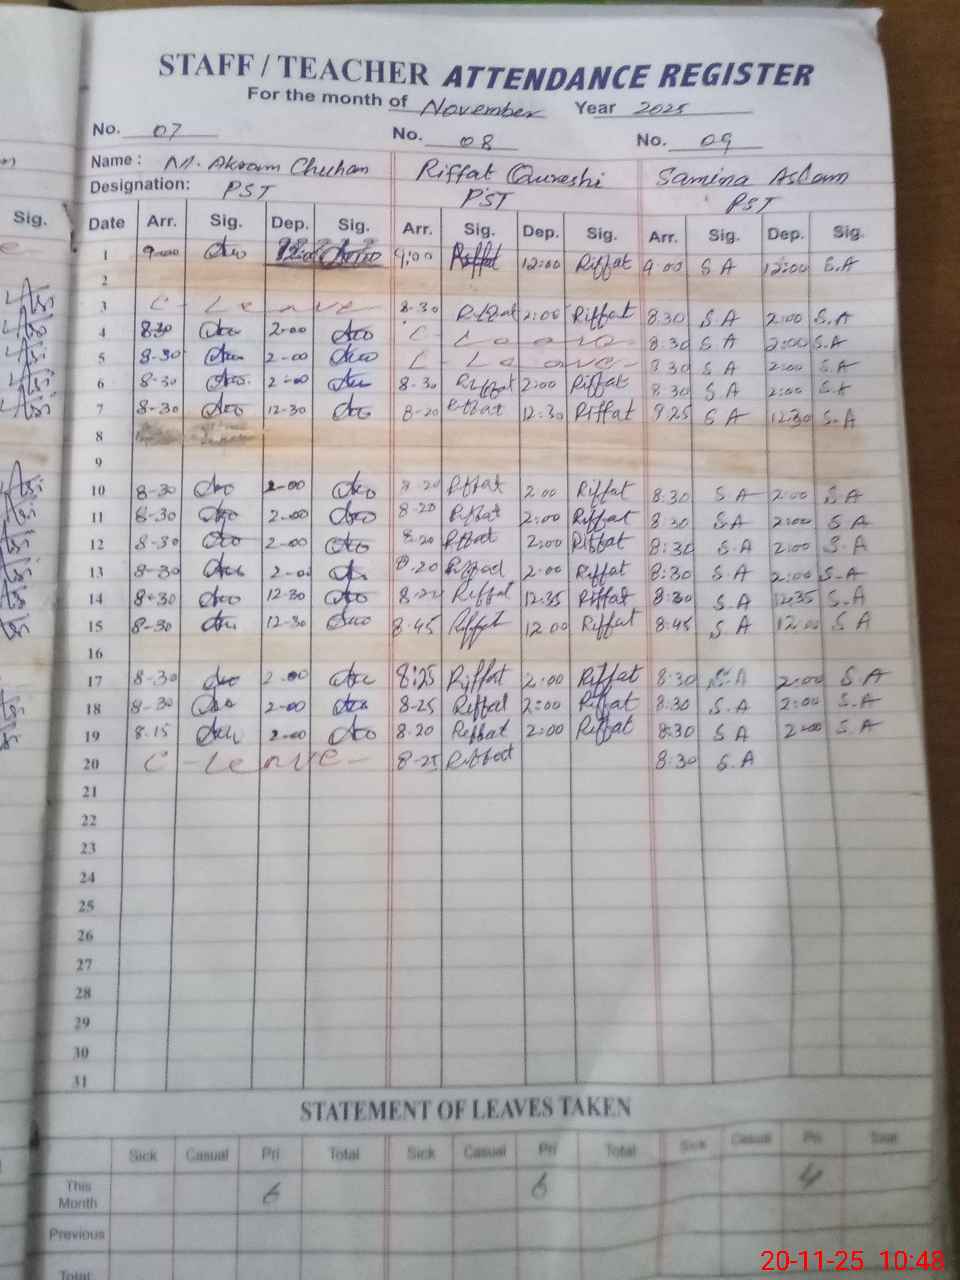 STAFF / TEACHER ATTENDANCE REGISTER
For the month of November Year 2025
No. 07 No. 08 No. 09
Name : M. Akram Chuhan Riffat Qureshi Samina Aslam
Designation: PST PST PST
Sig.
Date Arr. Sig. Dep. Sig. Arr. Sig. Dep. Sig. Arr. Sig. Dep. Sig.
1 9-00 9:00 Riffat 12:00 Riffat 9 00 S A 12:00 S.A
2
3 C - Leave 8-30 Riffat 2:00 Riffat 8.30 S.A 2:00 S.A
4 8.30 2-00 C - Leave 8:30 S.A 2:00 S.A
5 8-30 2-00 C - Leave- 8 30 S A 2:00 S.A
6 8-30 2-00 8-30 Riffat 2:00 Riffat 8.30 S.A 2:00 S.A
7 8-30 12-30 8-20 Riffat 12:30 Riffat 8 25 S A 12:30 S.A
8
9
10 8-30 2-00 8-20 Riffat 2.00 Riffat 8:30 S.A 2:00 S.A
11 8-30 2-00 8-20 Riffat 2:00 Riffat 8:30 S A 2:00 S.A
12 8-30 2-00 8.20 Riffat 2:00 Riffat 8:30 S.A 2:00 S.A
13 8-30 2-00 8.20 Riffat 2-00 Riffat 8:30 S A 2:00 S-A
14 8-30 12-30 Riffat 12:35 Riffat 8:30 S A 12:35 S.A
15 8-30 12-30 8.45 Riffat 12 00 Riffat 8:45 S A 12:00 S A
16
17 8-30 2-00 8:25 Riffat 2:00 Riffat 8:30 S.A 2:00 S.A
18 8-30 2-00 8-25 Riffat 2:00 Riffat 8.30 S.A 2:00 S.A
19 8.15 2-00 8.20 Riffat 2:00 Riffat 8:30 S A 2:00 S.A
20 C - Leave - 8-25 Riffat 8:30 S.A
21
22
23
24
25
26
27
28
29
30
31
STATEMENT OF LEAVES TAKEN
Sick Casual Pri Total Sick Casual Pri Total Sick Casual Pri Total
This Month 6 6 4
Previous
Total
20-11-25 10:48